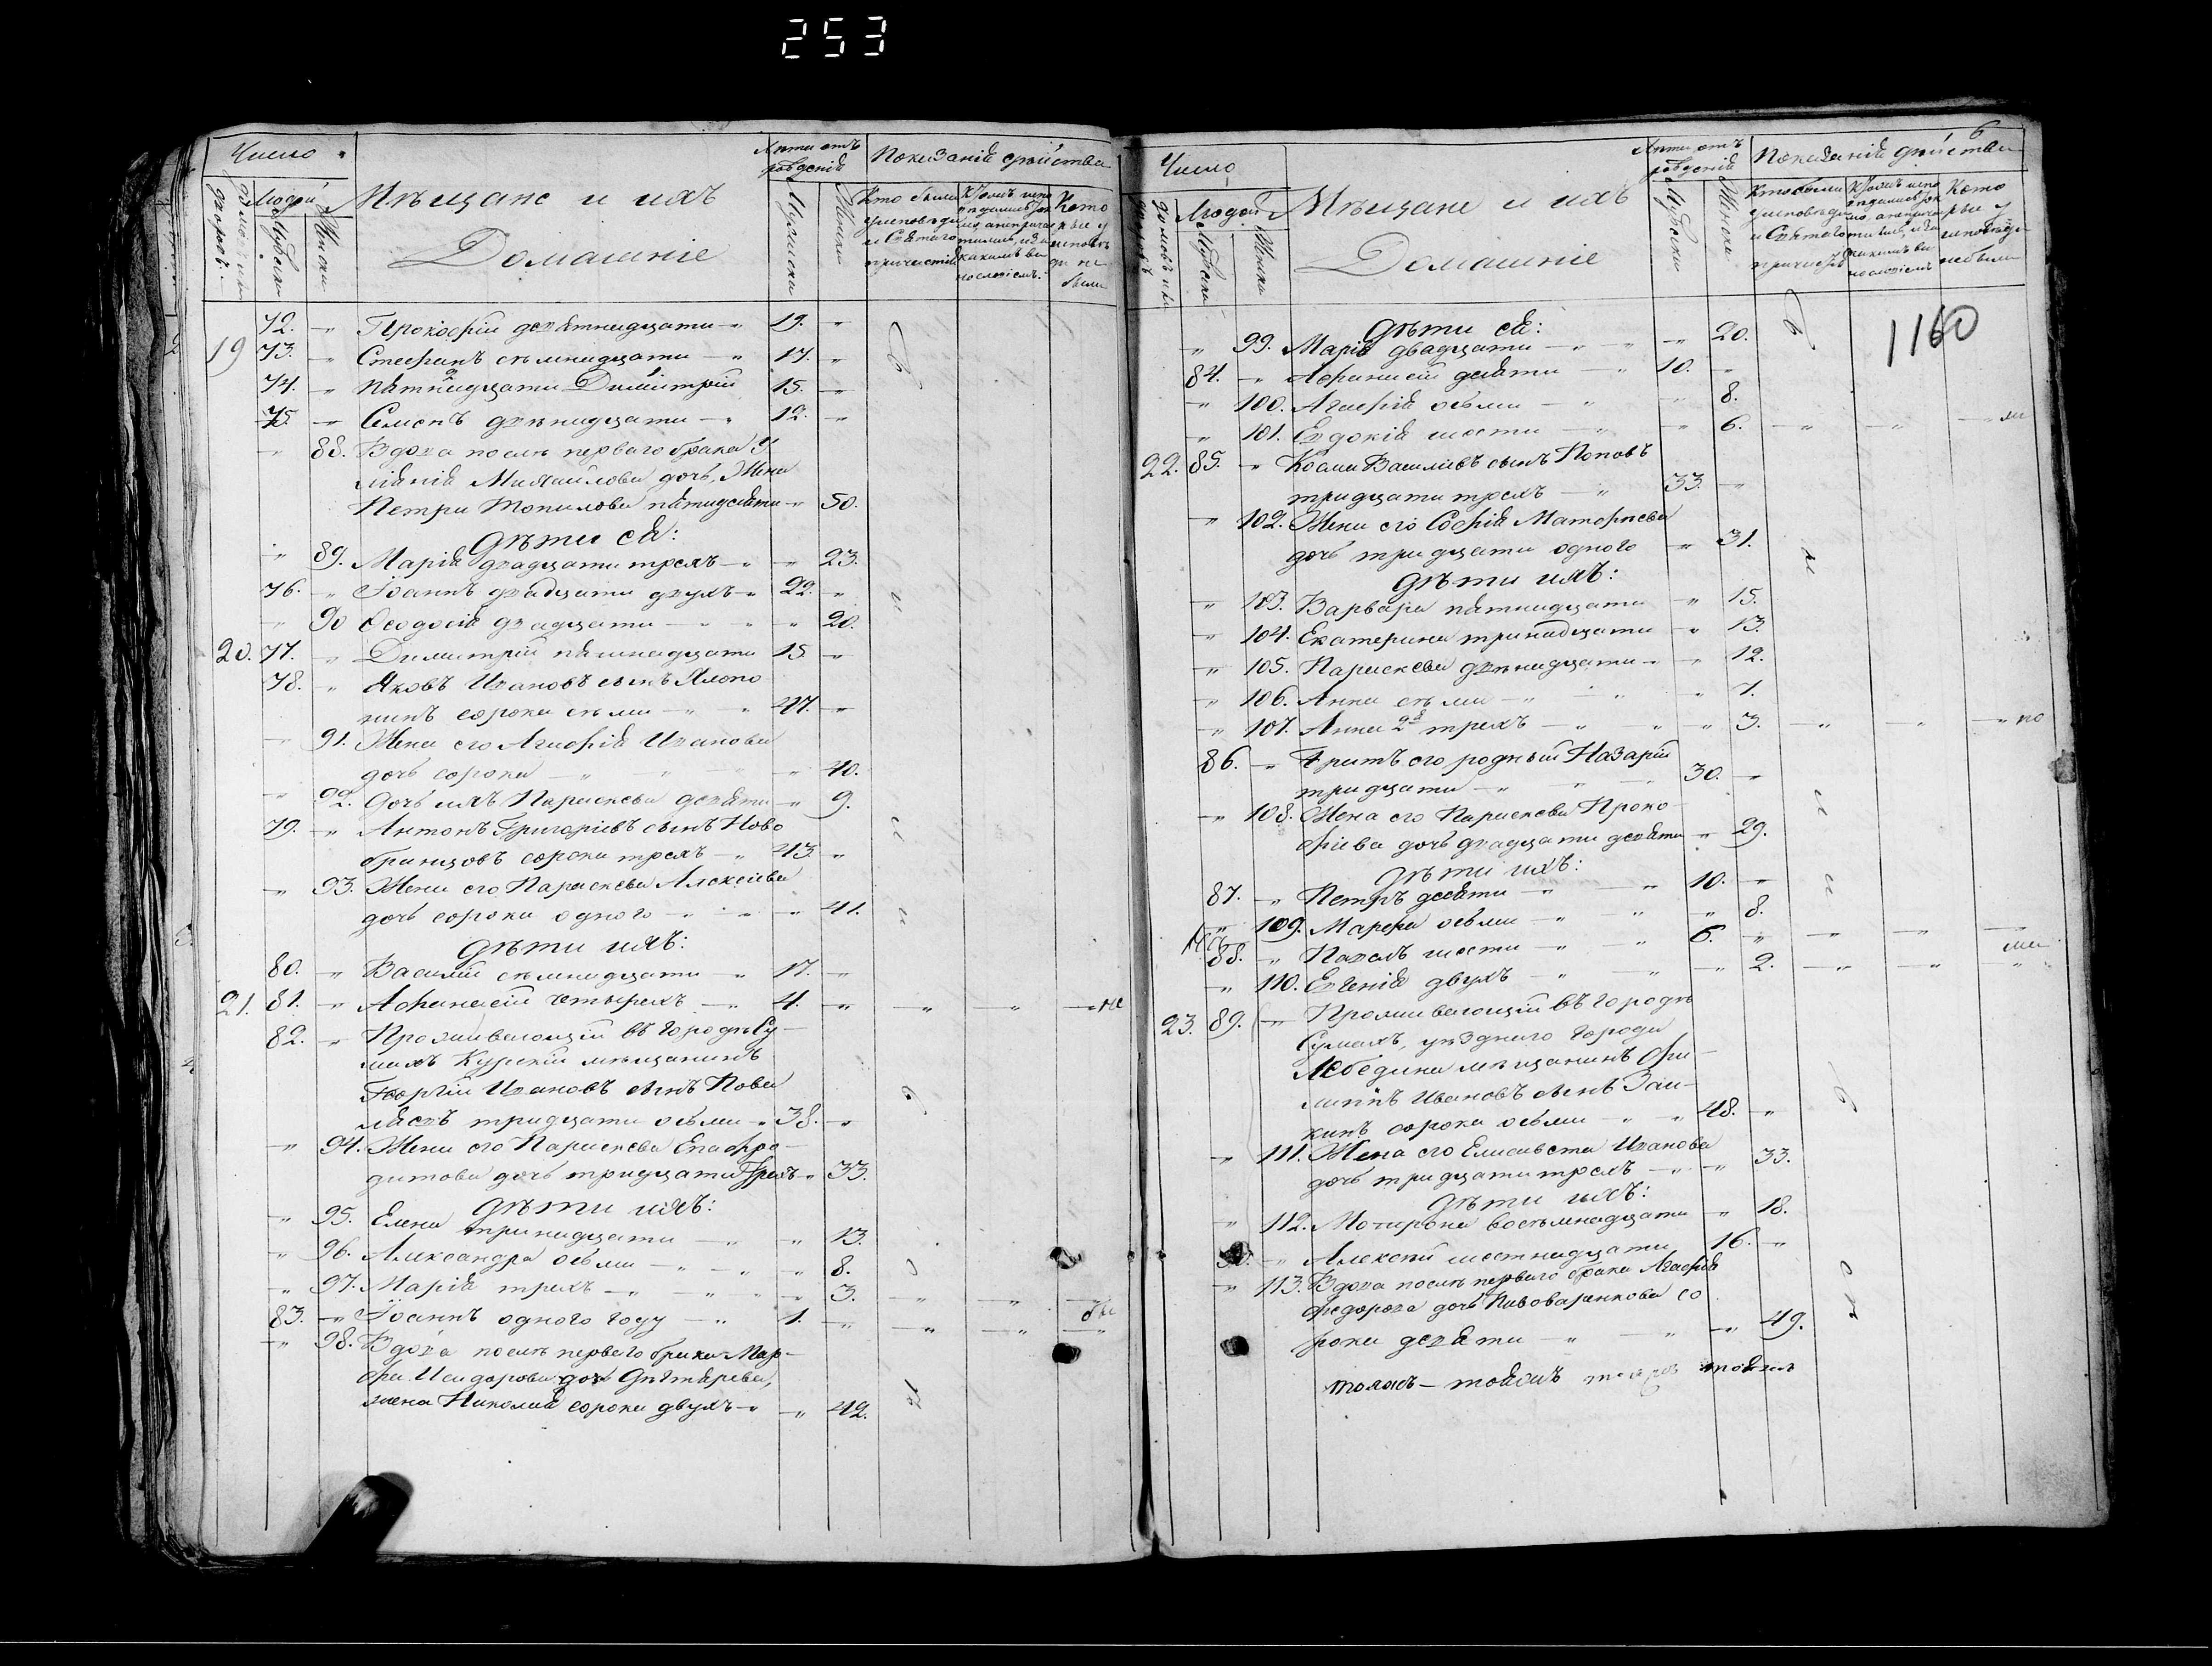 253
Число
Мѣщане и ихъ
Домашніе
Лѣта отъ
рождения
Показаніе дѣйства
Людей
Мужска
Женска
Кто были
у исповѣди
и Святаго
причастія
Кото
рые у
исповѣ
ди не
были
72. Прокофій девятнадцати 19.
19 73. Стефанъ семнадцати 17.
74. Пятнадцати Димитрій 15.
75. Семенъ двенадцати 12.
88. Вдова послѣ перваго брака У
ліанія Михайлова дочь, Жена
Петра Топилова пятидесяти 50.
Дѣти ея:
89. Марія двадцати трехъ 23.
76. Іоаннъ двадцати двухъ 22.
90 Феодосія двадцати 20.
20. 77. Димитрій пятнадцати 15
78. Яковъ Ивановъ сынъ Япо
нинъ сорока семи 47.
91. Жена его Агафія Иванова
дочь сорока 40.
92. Дочь ихъ Параскева девяти 9.
79. Антонъ Григоріевъ сынъ Ново
бранцовъ сорока трехъ 43.
93. Жена его Параскева Алексіева
дочь сорока одного 41.
Дѣти ихъ:
80. Василій семнадцати 17.
21. 81. Афанасій четырехъ 4.
82. Проживающій въ городѣ Су
махъ Курскій мѣщанинъ
Георгій Ивановъ сынъ Пова
ляевъ тридцати осьми 38.
94. Жена его Параскева Епафро
дитова дочь тридцати трехъ 33.
Дѣти ихъ:
95. Елена тринадцати 13.
96. Александра осьми 8.
97. Марія трехъ 3.
83. Іоаннъ одного году 1.
98. Вдова послѣ перваго брака Мар-
фа Исидорова дочь Дѣхтярева,
жена Николая сорока двухъ 42.
6
Число
Мѣщане и ихъ
Домашніе
Лѣта отъ
рождения
Показаніе дѣйства
Людей
Мужска
Женска
Кто были
у исповѣди
и Святаго
причастія
Кото
рые у
исповѣди
не были
1160
Дѣти ея:
99. Марія двадцати 20.
84. Афанасій десяти 10.
100. Агафія осьми 8.
101. Евдокія шести 6.
22. 85. Косма Василіевъ сынъ Поповъ
тридцати трехъ 33.
102. Жена его Софія Матфиева
дочь тридцати одного 31.
Дѣти ихъ:
103. Варвара пятнадцати 15.
104. Екатерина тринадцати 13.
105. Параскева двенадцати 12.
106. Анна семи 7.
107. Анна 2я трехъ 3.
86. Братъ его родный Назарій
тридцати 30.
108. Жена его Параскева Проко
фиева дочь двадцати девяти 29.
Дѣти ихъ:
87. Петръ десяти 10.
109. Марфа осьми 8.
88. Павелъ шести 6.
110. Евгенія двухъ 2.
23. 89. Проживающій въ городѣ
Сумахъ, уѣзднаго города
Лебедина мѣщанинъ Фи
липпъ Ивановъ сынъ Заи-
кинъ сорока осьми 48.
111. Жена его Елисавета Иванова
дочь тридцати трехъ 33.
Дѣти ихъ:
112. Мотрона восемнадцати 18.
90. Алексѣй шестнадцати 16.
113. Вдова послѣ перваго брака Агафія
Федорова дочь Пивоваренкова со
рока девяти 49.